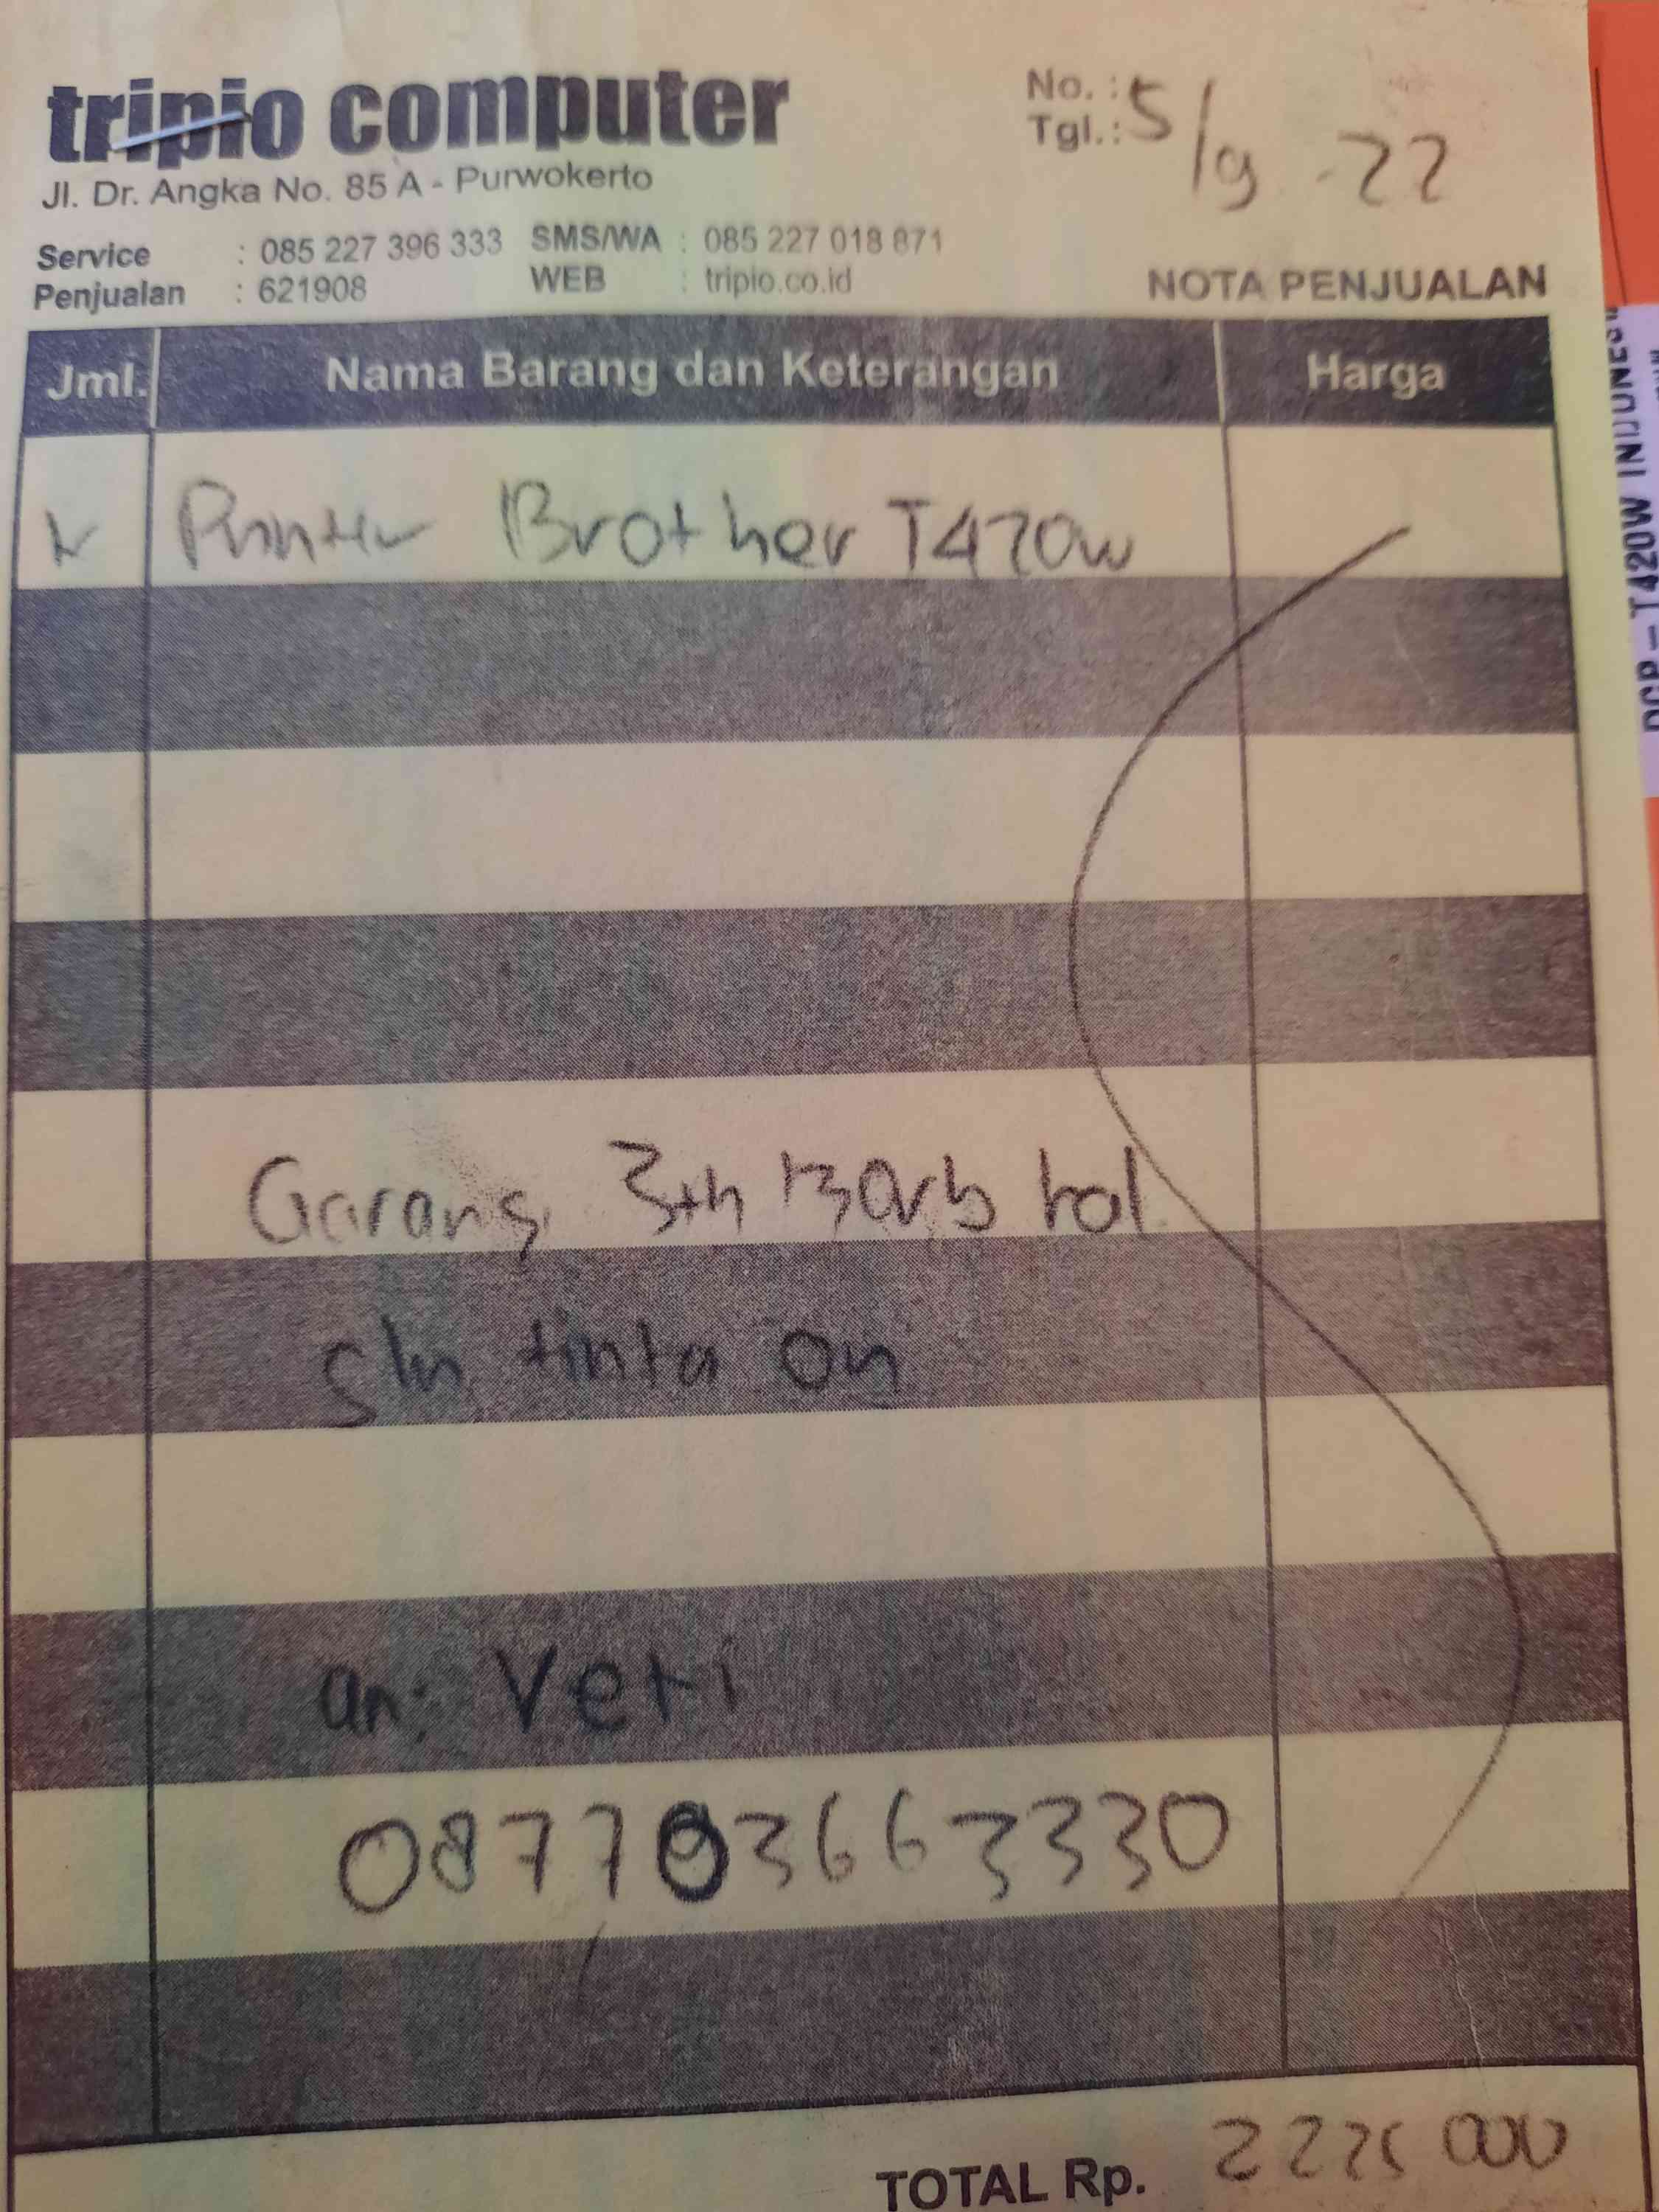 tripio computer
Jl. Dr. Angka No. 85 A - Purwokerto
Service : 085 227 396 333 SMS/WA : 085 227 018 871
Penjualan : 621908 WEB : tripio.co.id
No. :
Tgl. : 5/9 -22
NOTA PENJUALAN
Jml. Nama Barang dan Keterangan Harga
Printer Brother T420w
Garansi 3th / 30rb hal
sln tinta on
an: Veti
087703663330
TOTAL Rp. 2225 000
DCP-T420W INDONES